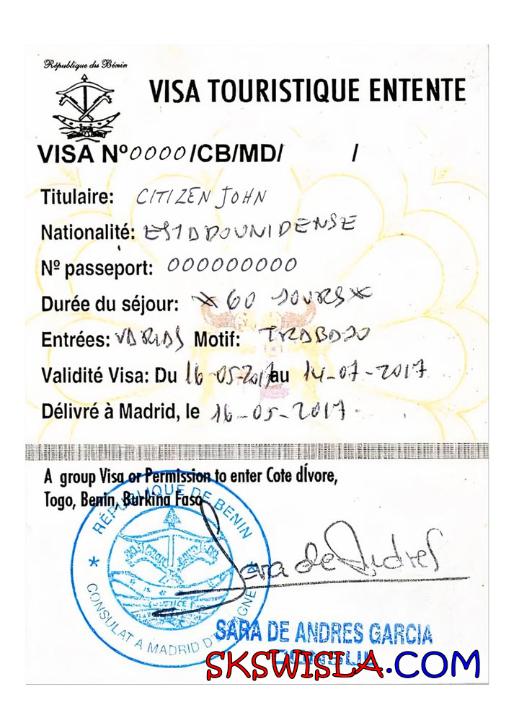 République du Bénin
VISA TOURISTIQUE ENTENTE
VISA Nº 0000/CB/MD/ /
Titulaire: CITIZEN JOHN
Nationalité: ESTADOUNIDENSE
Nº passeport: 000000000
Durée du séjour: * 60 JOURS *
Entrées: VARIAS Motif: TRABAJO
Validité Visa: Du 16-05-2017 au 14-07-2017
Délivré à Madrid, le 16-05-2017.
A group Visa or Permission to enter Cote dÍvore,
Togo, Benin, Burkina Faso
RÉPUBLIQUE DE BENIN
CONSULAT A MADRID
Sara de Andres
SARA DE ANDRES GARCIA
CONSUL
SKSWISLA.COM